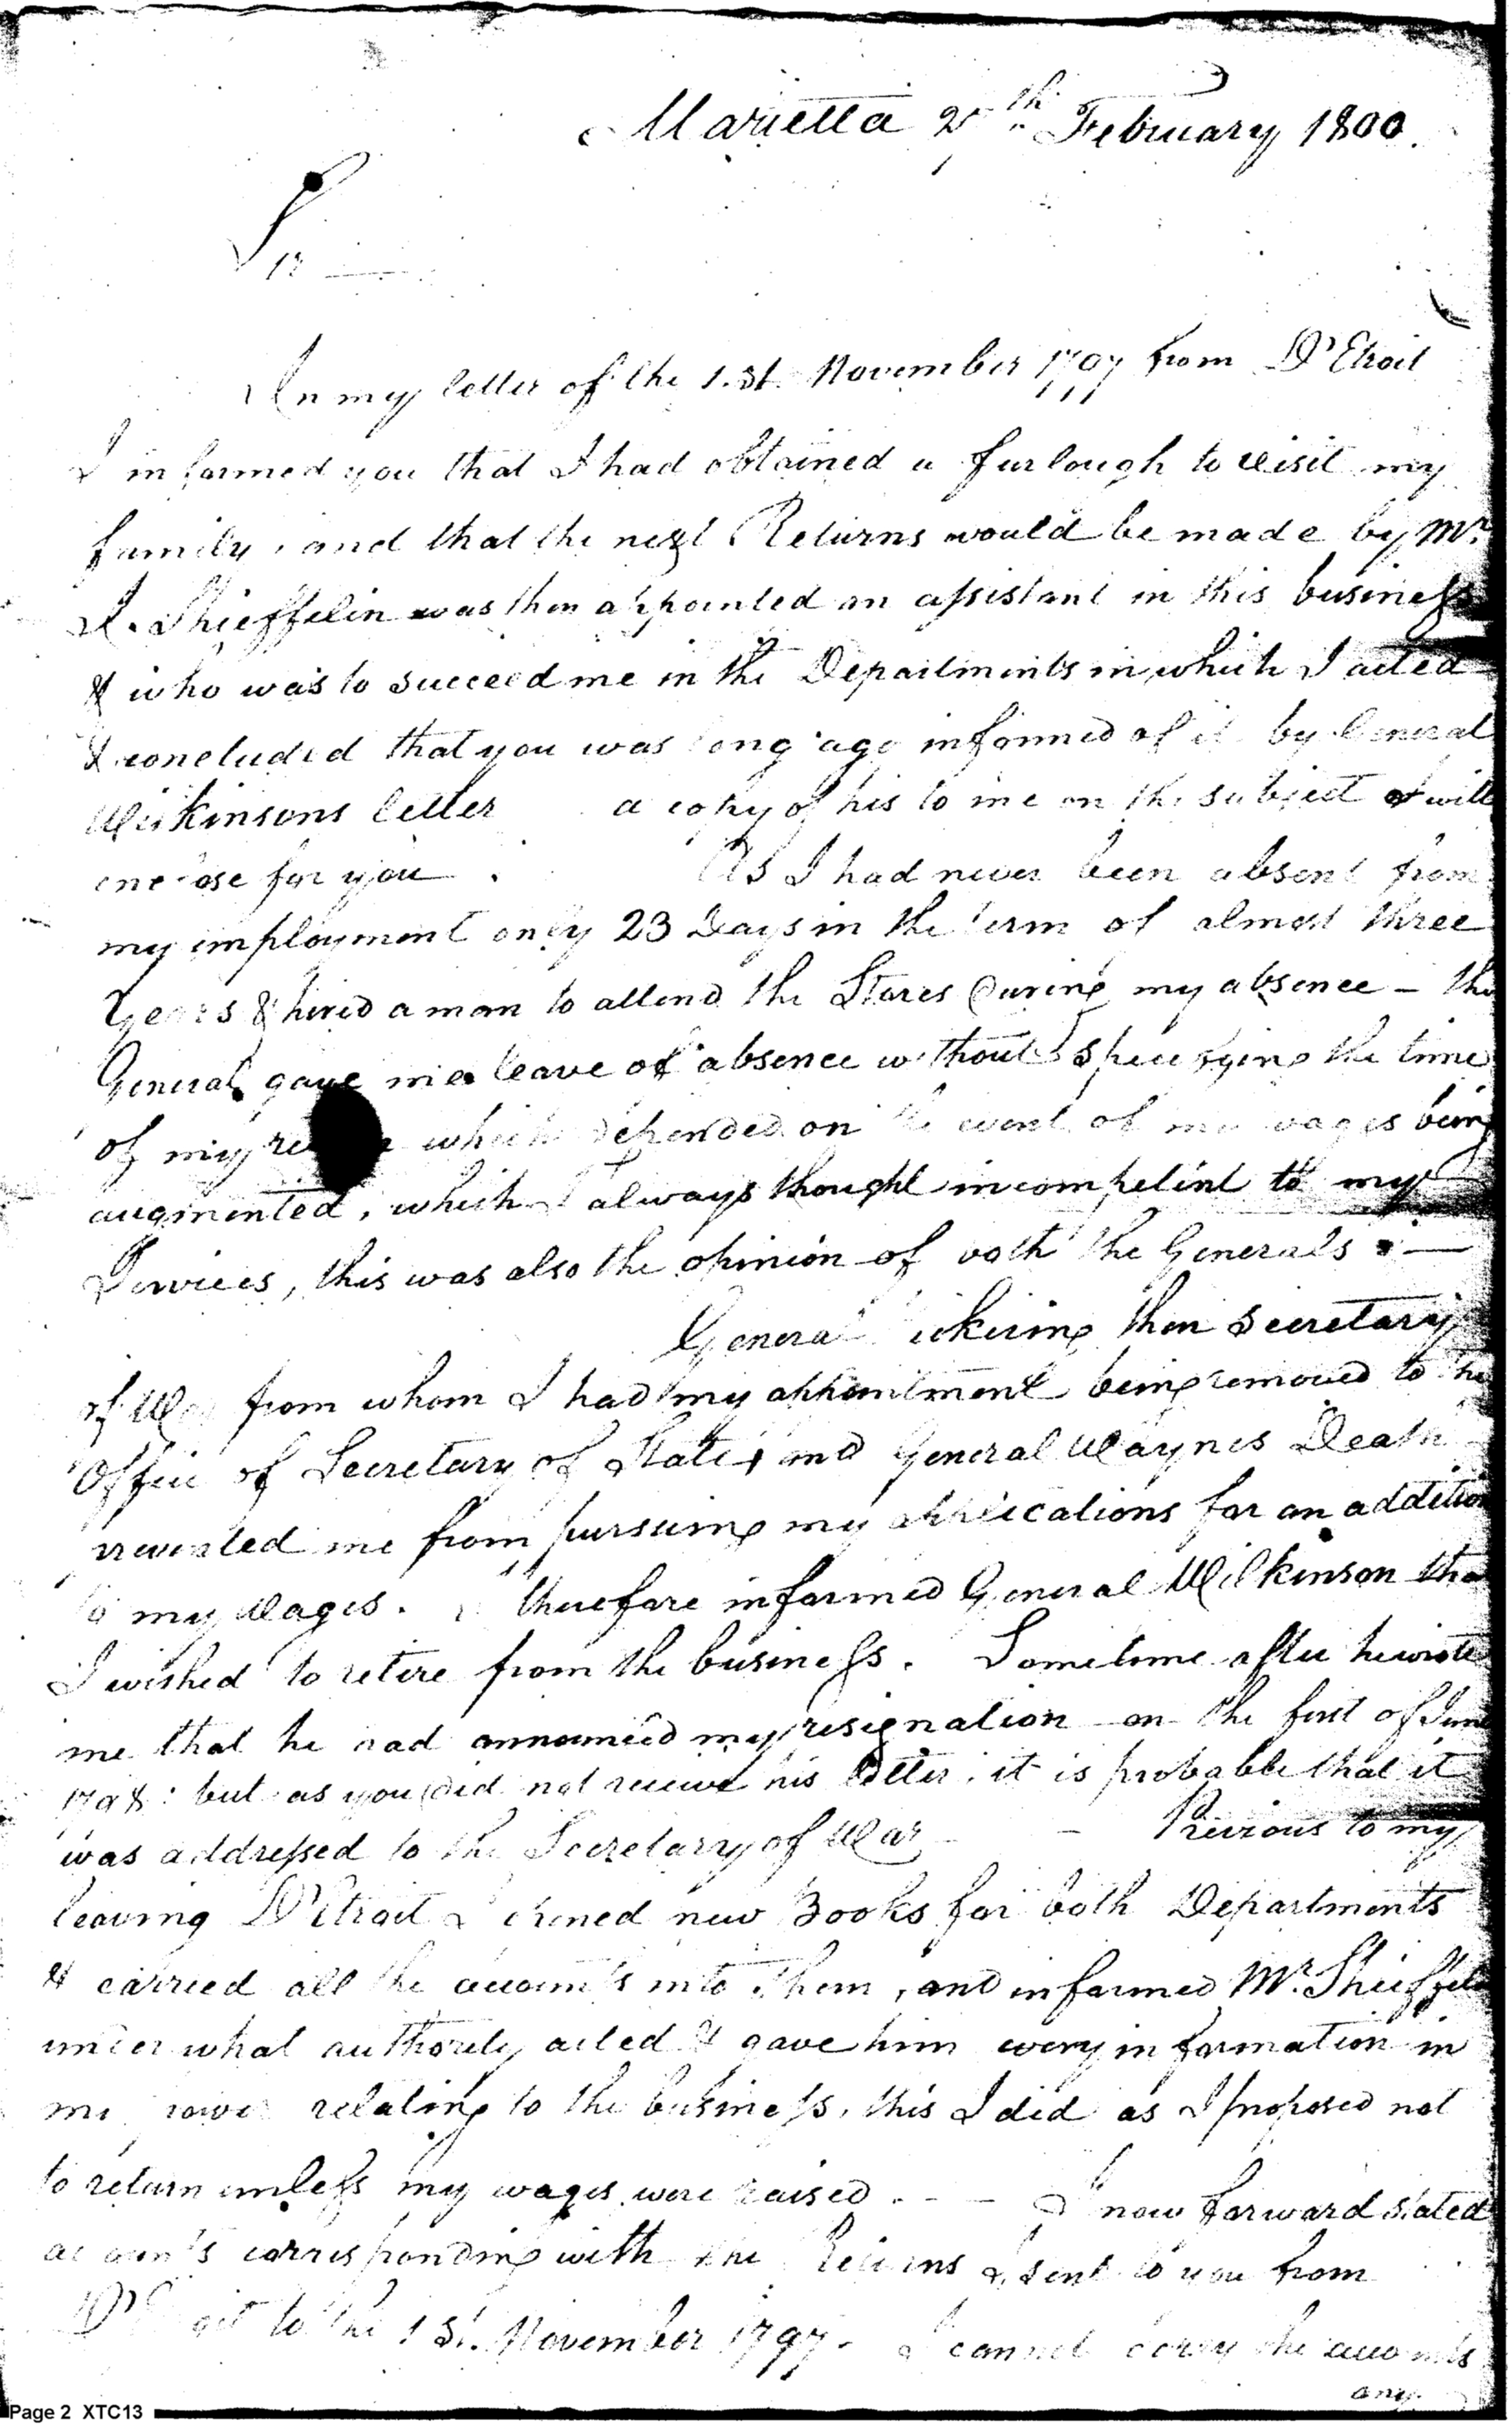 Marietta 2th February 1800.
Sir
In my letter of the 1.st November 1797 from D'Etroit
I informed you that I had obtained a furlough to visit my
family, and that the next Returns would be made by Mr.
Shieffelin was then appointed an assistant in this business
& who was to succeed me in the Departments in which I acted
& concluded that you was long ago informed of it by General
Wilkinsons letter a copy of his to me on the subject I will
enclose for you. As I had never been absent from
my employment only 23 Days in the term of almost three
Years & hired a man to attend the Stores During my absence - the
General gave me leave of absence without Specifying the time
of my which depended on the event of my wages being
augmented, which I always thought incompetent to my
Services, this was also the opinion of both the Generals. —
General Pickering then Secretary
of War from whom I had my appointment being removed to the
Office of Secretary of State, and General Waynes Death
prevented me from pursuing my applications for an addition
to my Wages. I therefore informed General Wilkinson that
I wished to retire from the business. Sometime after he wrote
me that he had announced my resignation on the first of June
1798: but as you did not receive his Letter, it is probable that it
was addressed to the Secretary of War - Previous to my
leaving D'Etroit I opened new Books for both Departments
& carried all the accounts into them, and informed Mr. Shieffelin
under what authority acted & gave him every information in
my power relating to the business, this I did as I proposed not
to return unless my wages were raised. - - I now forward stated
accounts corresponding with the Returns I sent to you from
D'Etroit to the 1st. November 1797. I cannot carry the accounts
any
Page 2 XTC13